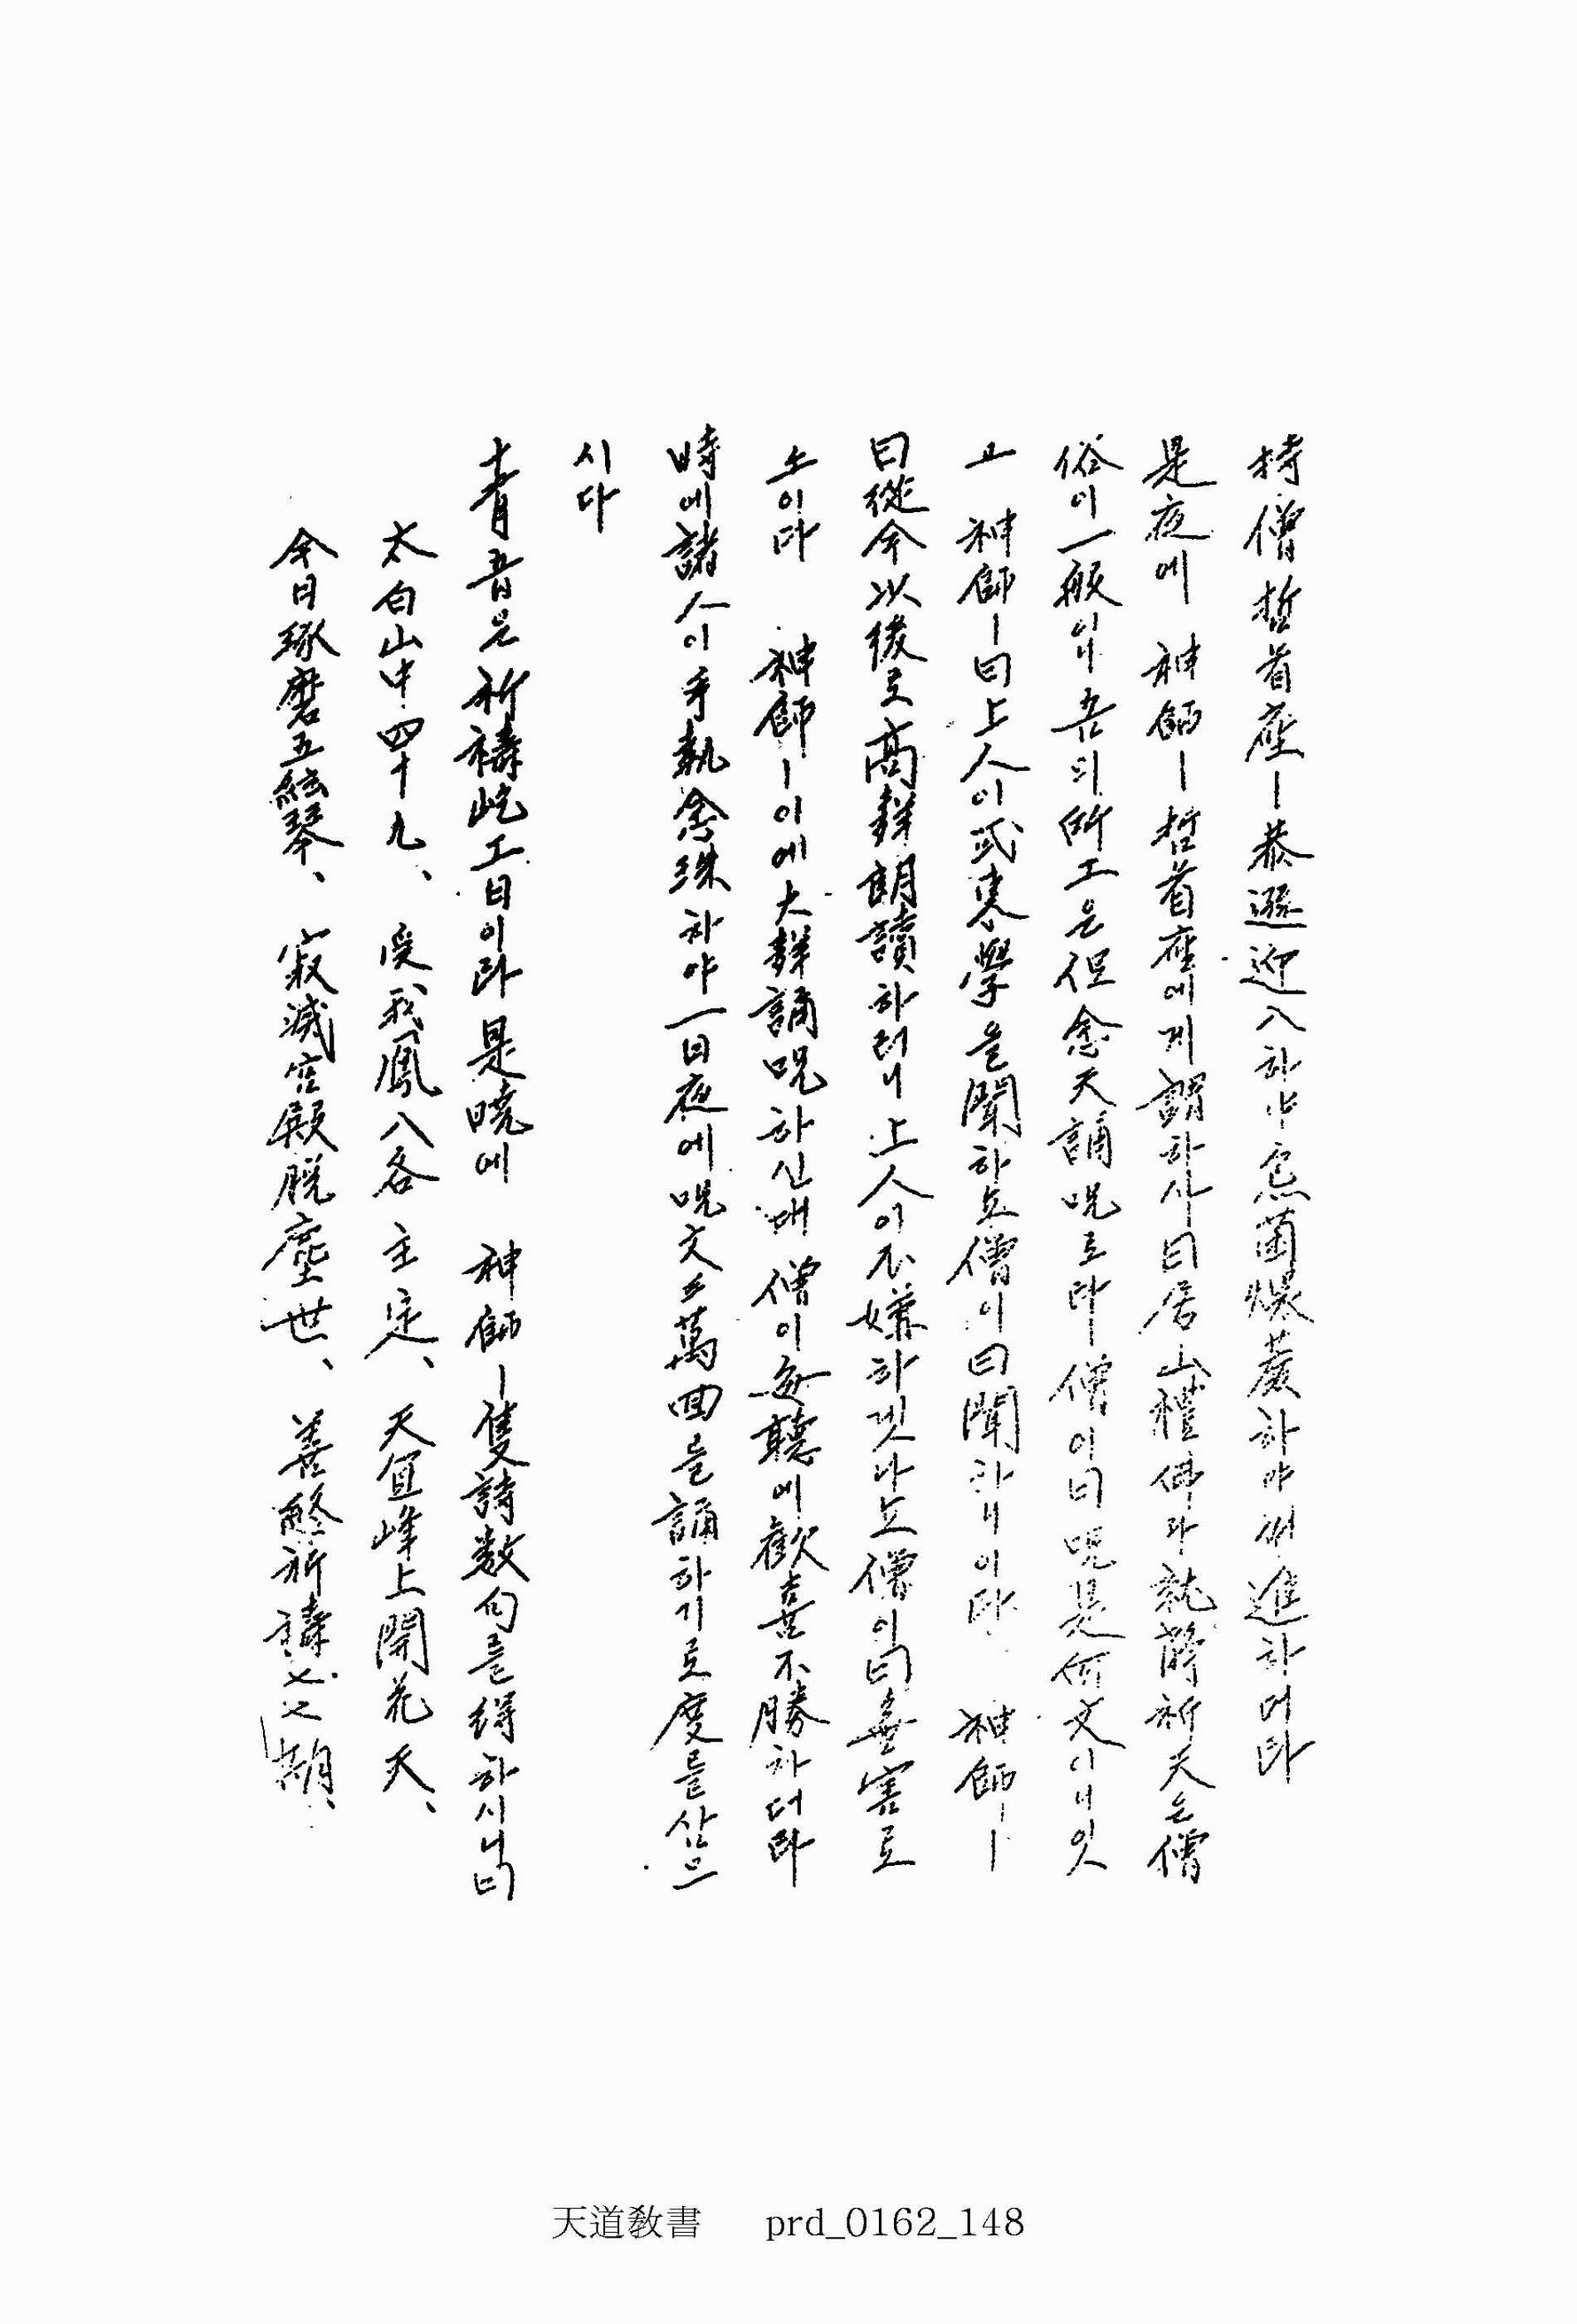 持僧哲首座ㅣ恭遜迎入하야烹菌爆蔆하야써進하더라
是夜에 神師ㅣ哲首座에게謂하사曰居山禮佛과就静祈天은僧
俗이一般이니吾의所工은但念天誦呪로라僧이曰呪是何文이니잇
고 神師ㅣ曰上人이或東學을聞하뇨僧이曰聞하니이다 神師ㅣ
曰從今以後로高聲朗讀하려니上人이不嫌하겟나뇨僧이曰無害로
소이다 神師ㅣ이에大聲誦呪하신대僧이每聽에歡喜不勝하더라
時에諸人이手執念珠하야一日夜에呪文三萬回를誦하기로度를삼으
시다
十月五日은祈禱訖工日이라是曉에 神師ㅣ隻詩数句를得하시니曰
太白山中四十九、受我鳳八各主定、天宜峰上開花天、
今日琢磨五絃琴、寂滅宮殿脱塵世、善終祈禱七七期、
天道敎書 prd_0162_148